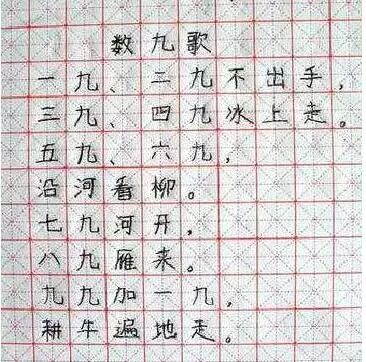 数九歌
一九、二九不出手，
三九、四九冰上走。
五九、六九，
沿河看柳。
七九河开，
八九雁来。
九九加一九，
耕牛遍地走。